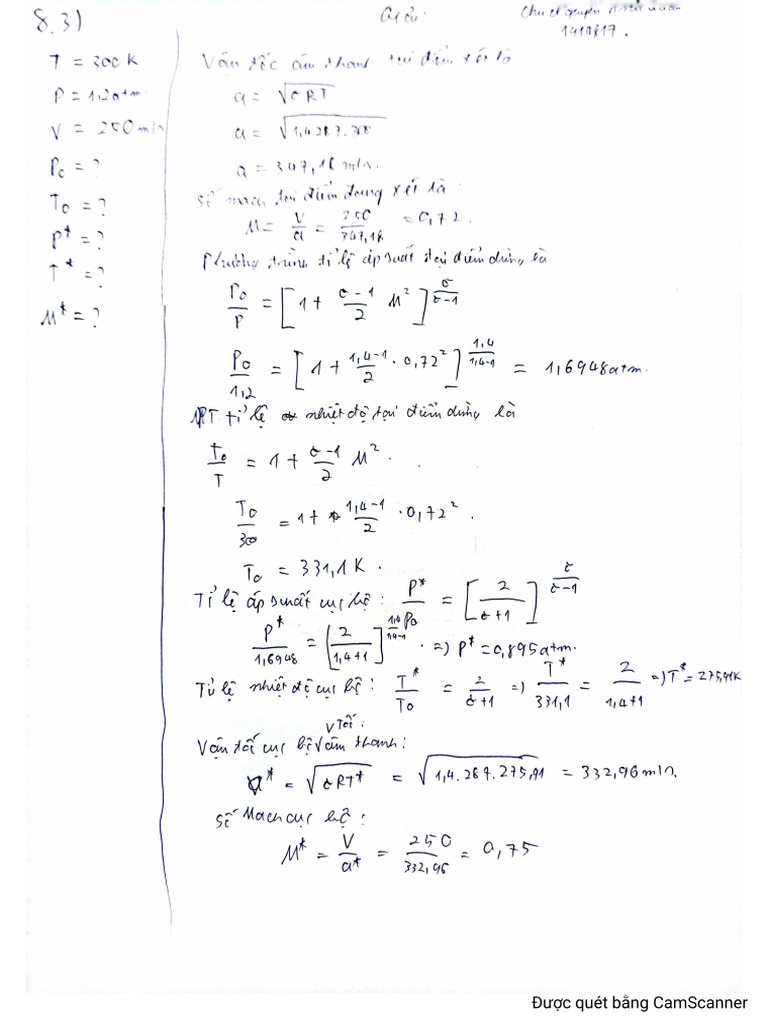 8.3)
Giải.
1410817.
T = 300K
P = 1,2atm
V = 250 m/s
P₀ = ?
T₀ = ?
P* = ?
T* = ?
M* = ?
Vận tốc âm thanh tại điểm xét là
a = √(σRT)
a = √(1,4.287.300)
a = 347,18 m/s.
Số mach tại điểm đang xét là.
M = V/a = 250/347,18 = 0,72.
Phương trình tỉ lệ áp suất tại điểm dừng là
P₀/P = [1 + (σ-1)/2 M²]^(σ/(σ-1))
P₀/1,2 = [1 + (1,4-1)/2 . 0,72²]^(1,4/(1,4-1)) = 1,6948atm.
PT tỉ lệ nhiệt độ tại điểm dừng là
T₀/T = 1 + (σ-1)/2 M².
T₀/300 = 1 + (1,4-1)/2 . 0,72².
T₀ = 331,1K.
Tỉ lệ áp suất cục bộ: P*/P₀ = [2/(σ+1)]^(σ/(σ-1))
P*/1,6948 = [2/(1,4+1)]^(1,4/(1,4-1)) . => P* = 0,895atm.
Tỉ lệ nhiệt độ cục bộ: T*/T₀ = 2/(σ+1) => T*/331,1 = 2/(1,4+1) => T* = 275,91K
Vận tốc cục bộ âm thanh:
a* = √(σRT*) = √(1,4.287.275,91) = 332,96 m/s.
Số Mach cục bộ:
M* = V/a* = 250/332,96 = 0,75
Được quét bằng CamScanner